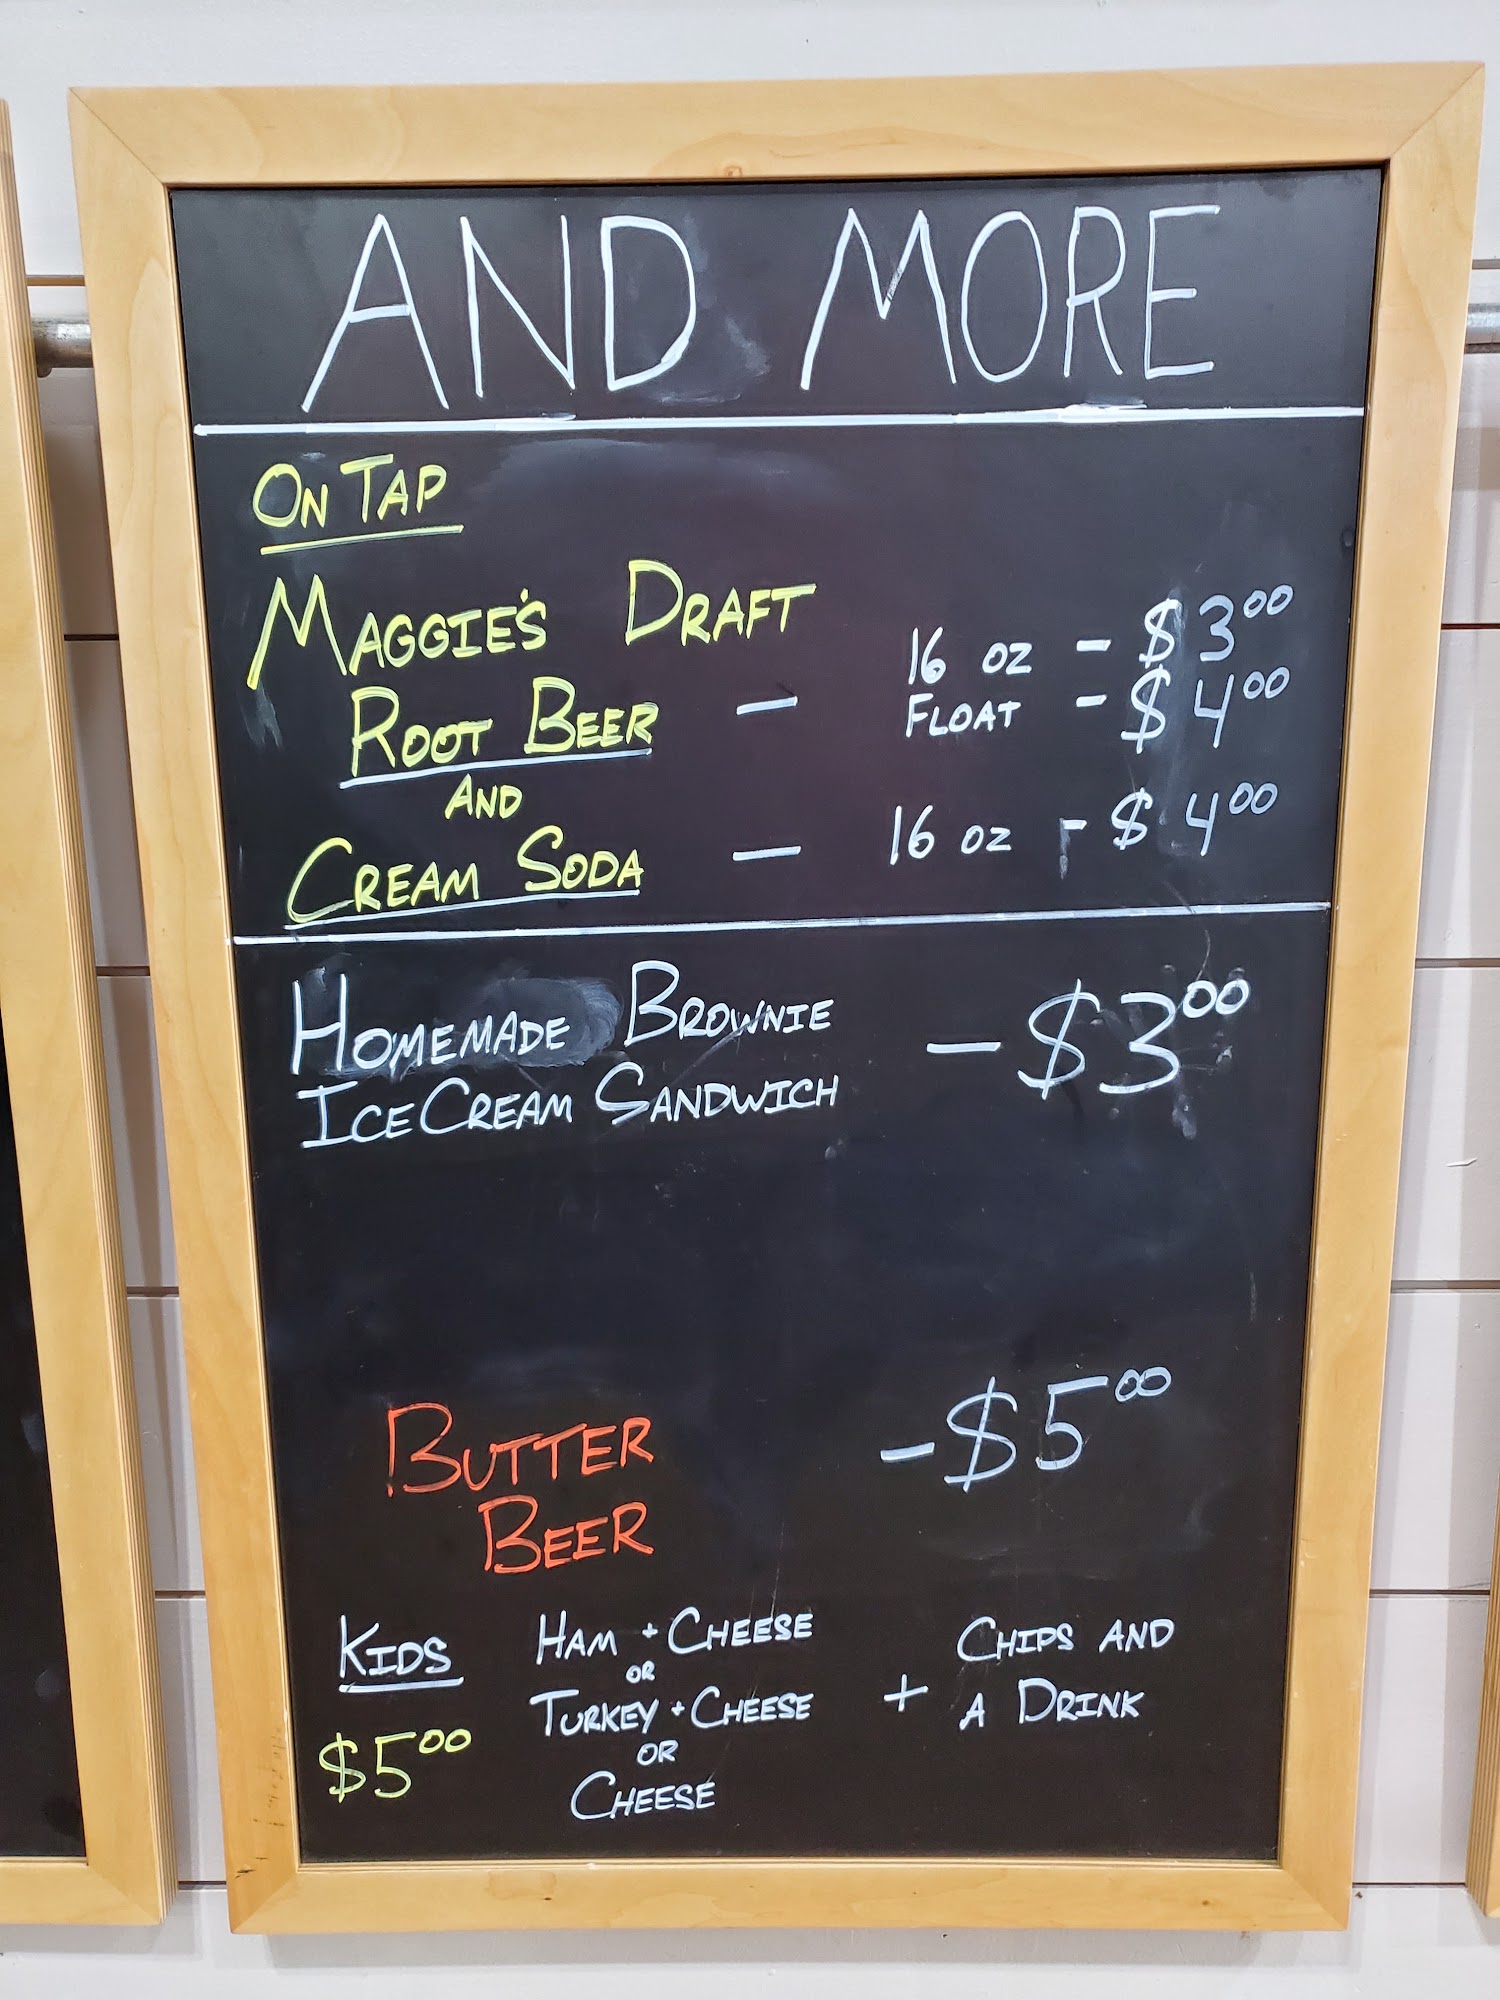 AND MORE
ON TAP
MAGGIE'S DRAFT
ROOT BEER — 16 OZ - $3.00
FLOAT - $4.00
AND
CREAM SODA — 16 OZ - $4.00
HOMEMADE BROWNIE
ICE CREAM SANDWICH — $3.00
BUTTER
BEER — $5.00
KIDS
$5.00
HAM + CHEESE
OR
TURKEY + CHEESE
OR
CHEESE
+
CHIPS AND
A DRINK